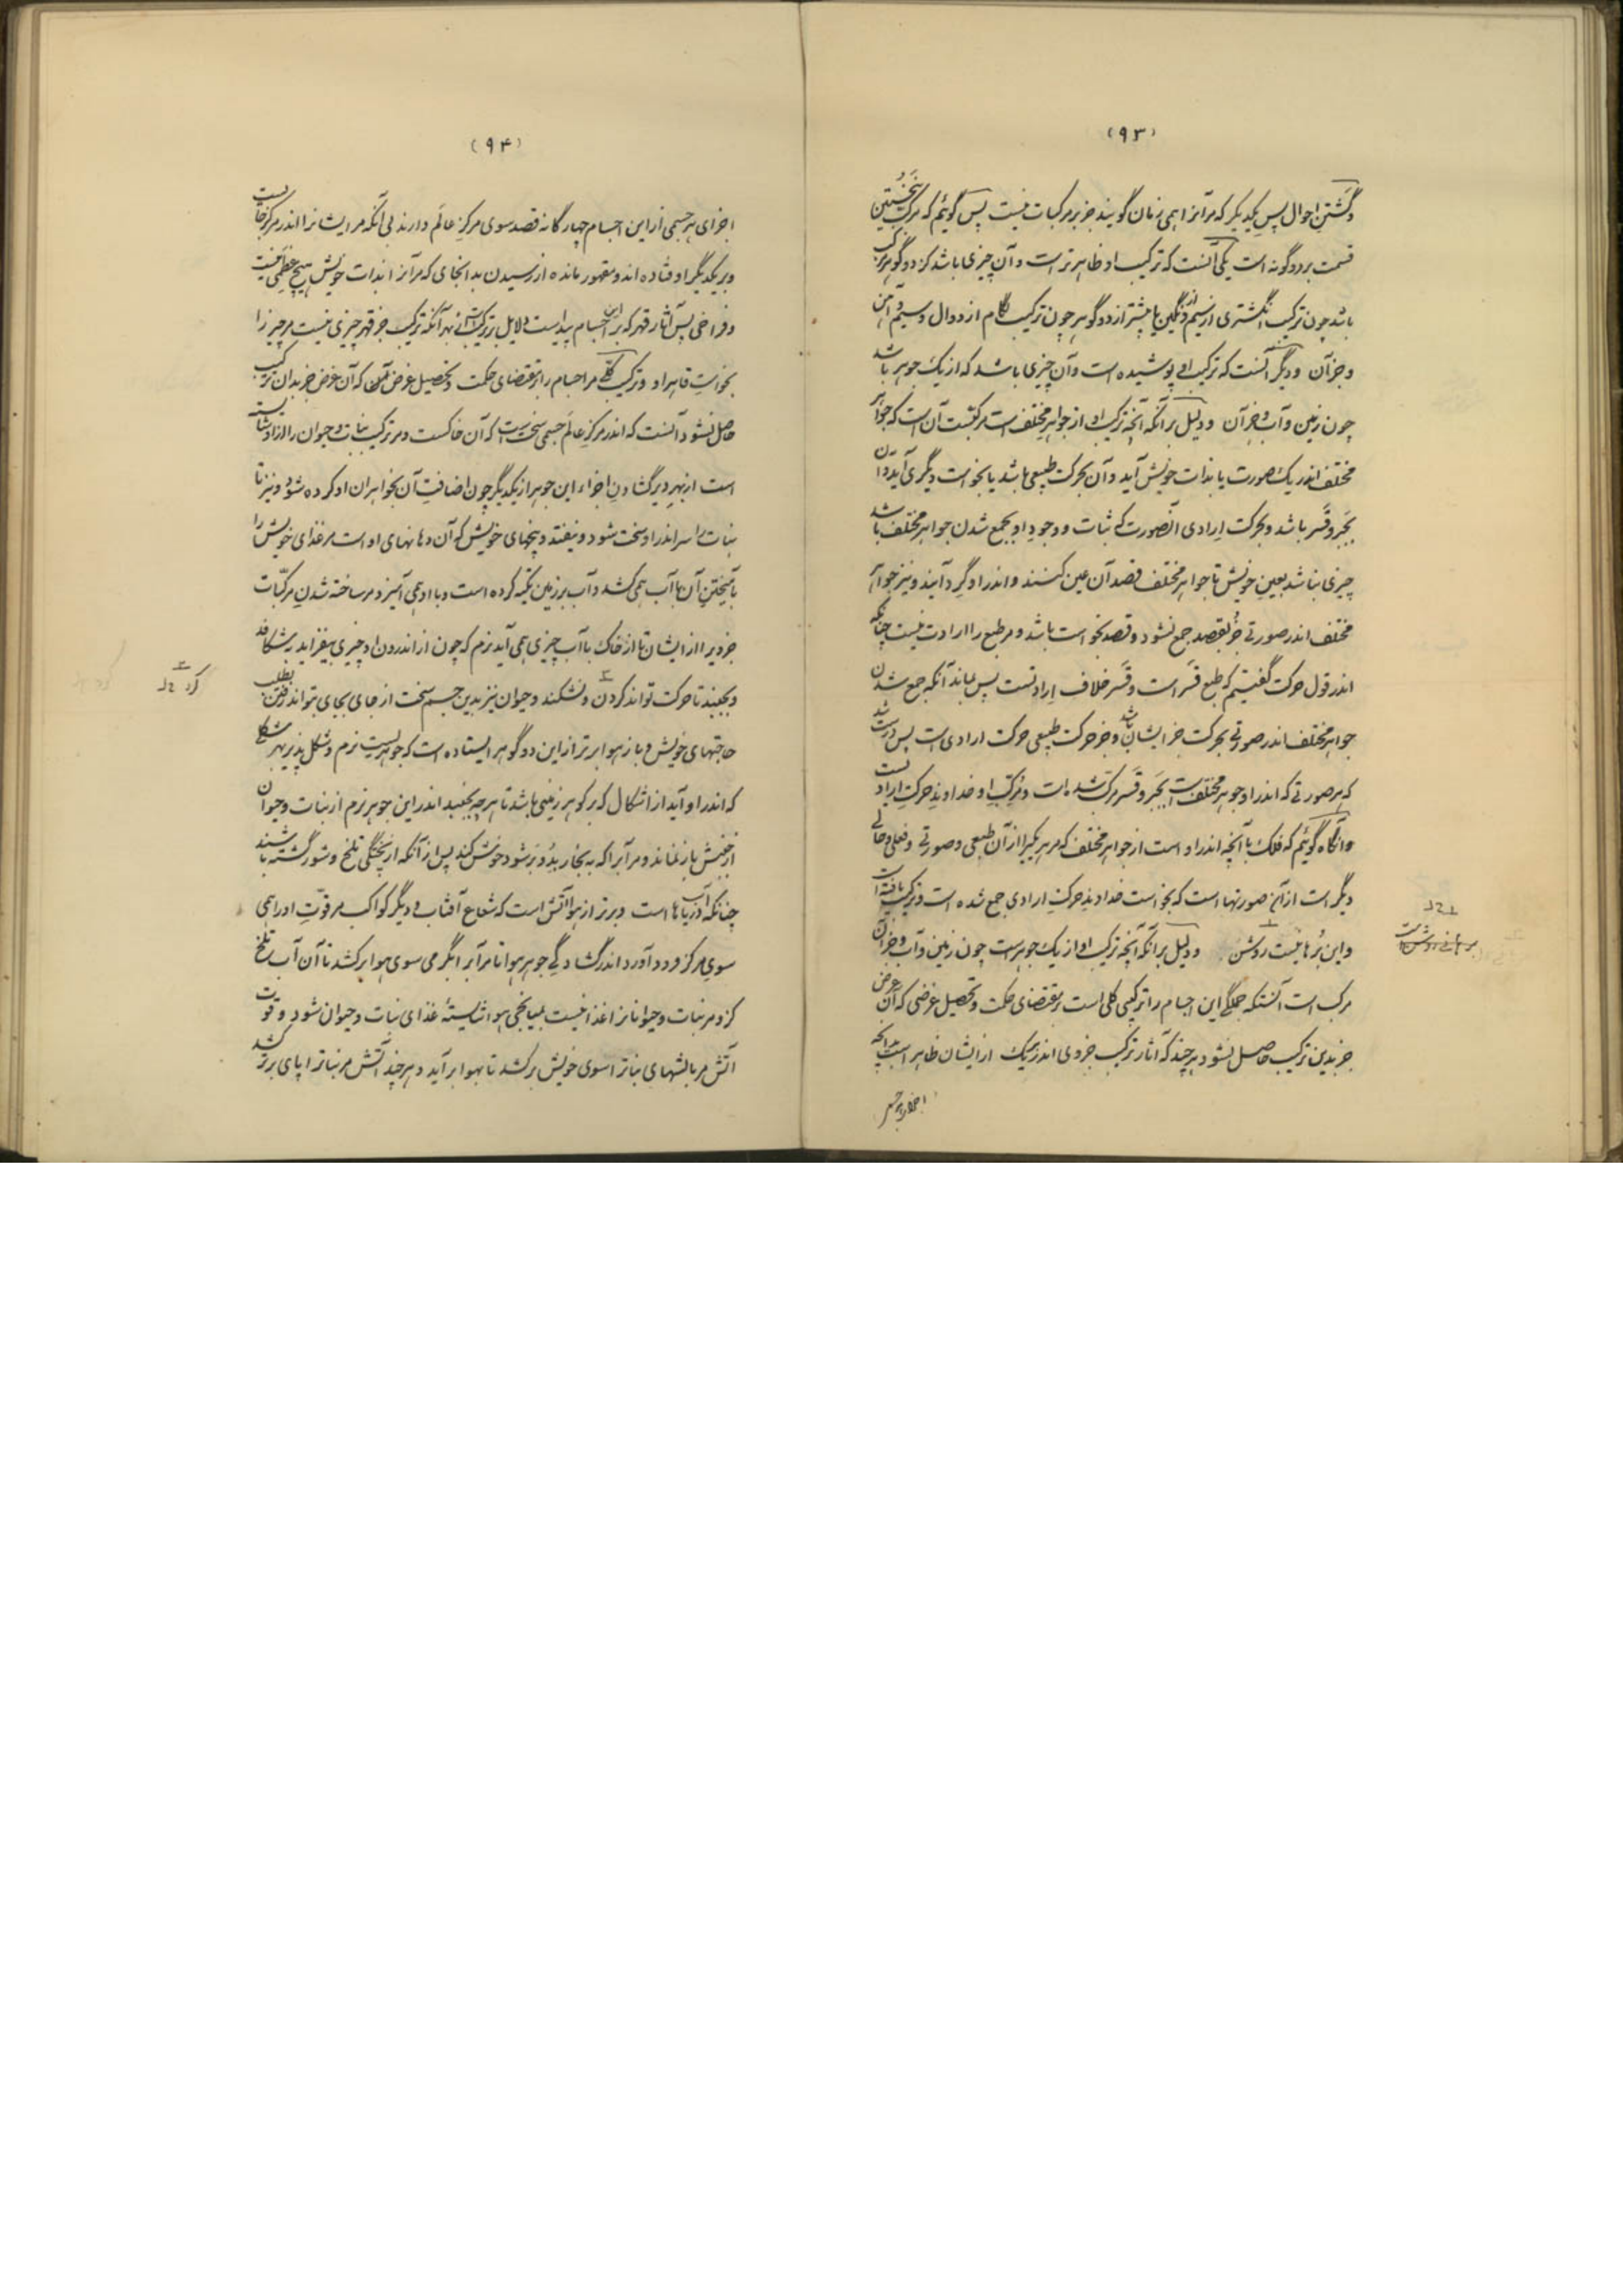 (۹۳)
و گشتن احوال پس یکدیگر که مر آنرا همی زمان گویند جز بر مرکبات نیست پس گوئیم که مرکب نخستین
قسمت بر دو گونه است یکی آنست که ترکیب او ظاهرتر است و آن چیزی باشد کز دو گوهر مرکب
باشد چون ترکیب انگشتری از سیم و از نگین یا بیشتر از دو گوهر چون ترکیب لگام از دوال و سیم و آهن
و جز آن و دیگر آنست که ترکیب او پوشیده است و آن چیزی باشد که از یک جوهر باشد
چون زمین و آب و جز آن و دلیل بر آنکه آنچه ترکیب او از جواهر مختلف است مرکبست آن است که جواهر
مختلف اندر یک صورت یا بذات خویش آید و آن بحرکت طبیعی باشد یا بخواست دیگری آید و آن
بجبر و قسر باشد و بحرکت ارادی آنصورت که ثبات و وجود او بجمع شدن جواهر مختلف باشد
چیزی نباشد بعین خویش تا جواهر مختلف قصد آن عین کنند و اندر او گرد آیند و نیز جواهر
مختلف اندر صورتی جز بقصد جمع نشود و قصد بخواست باشد و مر طبع را ارادت نیست چنانکه
اندر قول حرکت گفتیم که طبع قسر است و قسر خلاف ارادتست پس بماند آنکه جمع شدن
جواهر مختلف اندر صورتی بحرکت جز ایشان باشد و جز حرکت طبیعی حرکت ارادی است پس درست شد
که هر صورتی که اندر او جوهر مختلف است بجبر و قسر مرکب شده است و مرکب او خداوند حرکت ارادیست
و آنگاه گوئیم که فلک با آنچه اندر او است از جواهر مختلف که مر هر یکیرا از آن طبعی و صورتی و فعلی و حالی
دیگر است از آن صورتها است که بخواست خداوند حرکت ارادی جمع شده است و ترکیب یافته است
و این برهانیست روشن و دلیل بر آنکه آنچه ترکیب او از یک جوهرست چون زمین و آب و جز آن
مرکب است آنستکه جملگی این اجسام را ترکیبی کلی است بر مقتضای حکمت و تحصیل غرضی که آن غرض
جز بدین ترکیب حاصل نشود هر چند که آثار ترکیب جزوی اندر هر یک از ایشان ظاهر است بدانچه
اجزای هر جسمی
(۹۴)
اجزای هر جسمی از این اجسام چهارگانه قصد سوی مرکز عالم دارند بی آنکه مر ایشانرا اندر مرکز جاست
و بر یکدیگر اوفتاده اند و مقهور مانده از رسیدن بدانجای که مر آنرا بذات خویش هیچ عظمی نیست
و فراخی پس آثار قهر که بر این اجسام پیداست دلایل ترکیب است از بهر آنکه ترکیب جز قهر چیزی نیست مر چیز را
بخواست قاهر او و ترکیب کلی مر اجسام را بر مقتضای حکمت و تحصیل غرض که آن غرض جز بدان ترکیب
حاصل نشود آنست که اندر مرکز عالم جسمی سخت است که آن خاکست و مر ترکیب نبات و حیوان را او شایسته
است از بهر دیر گشادن اجزاء این جوهر از یکدیگر چون اضافت آن بخواهران او کرده شود و نیز تا
نبات را سر اندر او سخت شود و نیفتد و بیخهای خویش که آن دهانهای او است مر غذای خویش را
بآمیختن آن با آب همی کشد و آب بر زمین تکیه کرده است و با او همی آمیزد مر ساخته شدن مرکبات
جزویرا از ایشان تا از خاک با آب چیزی همی آید نرم که چون از اندرون او چیزی بیفزاید بشکافد
و بجنبد تا حرکت تواند کردن و نشکند و حیوان نیز بدین جسم سخت از جای بجای بتواند رفتن بطلب
حاجتهای خویش و باز هوا برتر از این دو گوهر ایستاده است که جوهریست نرم و شکل پذیر بهر شکلی
که اندر او آید از اشکال که بر گوهر زمینی باشد تا هر چه بجنبد اندر این جوهر نرم از نبات و حیوان
از جنبش باز نماند و مر آبرا که به بخار بدو بر شود خوش کند پس از آنکه از پختگی تلخ و شور گشته باشند
چنانکه آب دریاها است و برتر از هوا آتش است که شعاع آفتاب و دیگر کواکب مر قوت او را همی
سوی مرکز فرود آورد اندر گشادگی جوهر هوا تا مر آبرا بگرمی سوی هوا برکشد تا آن آب تلخ
کزو مر نبات و حیوانرا غذا نیست بمیانجی هوا شایستهٔ غذای نبات و حیوان شود و قوت
آتش مر بالشهای نباترا سوی خویش برکشد تا بهوا برآید و هر چند آتش مر نباترا بپای برتر کشد